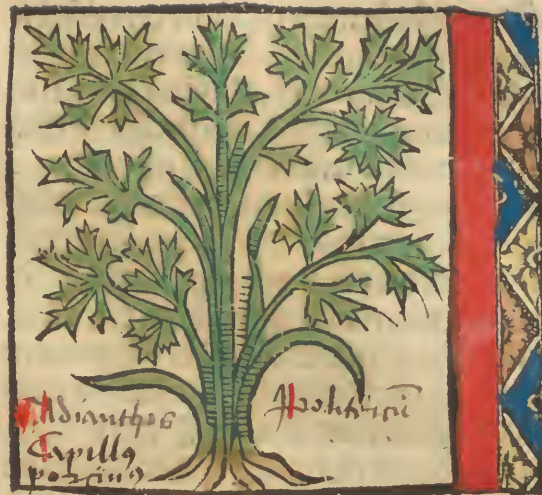 Adianthos
Capillꝰ
porcinꝰ
Politricū